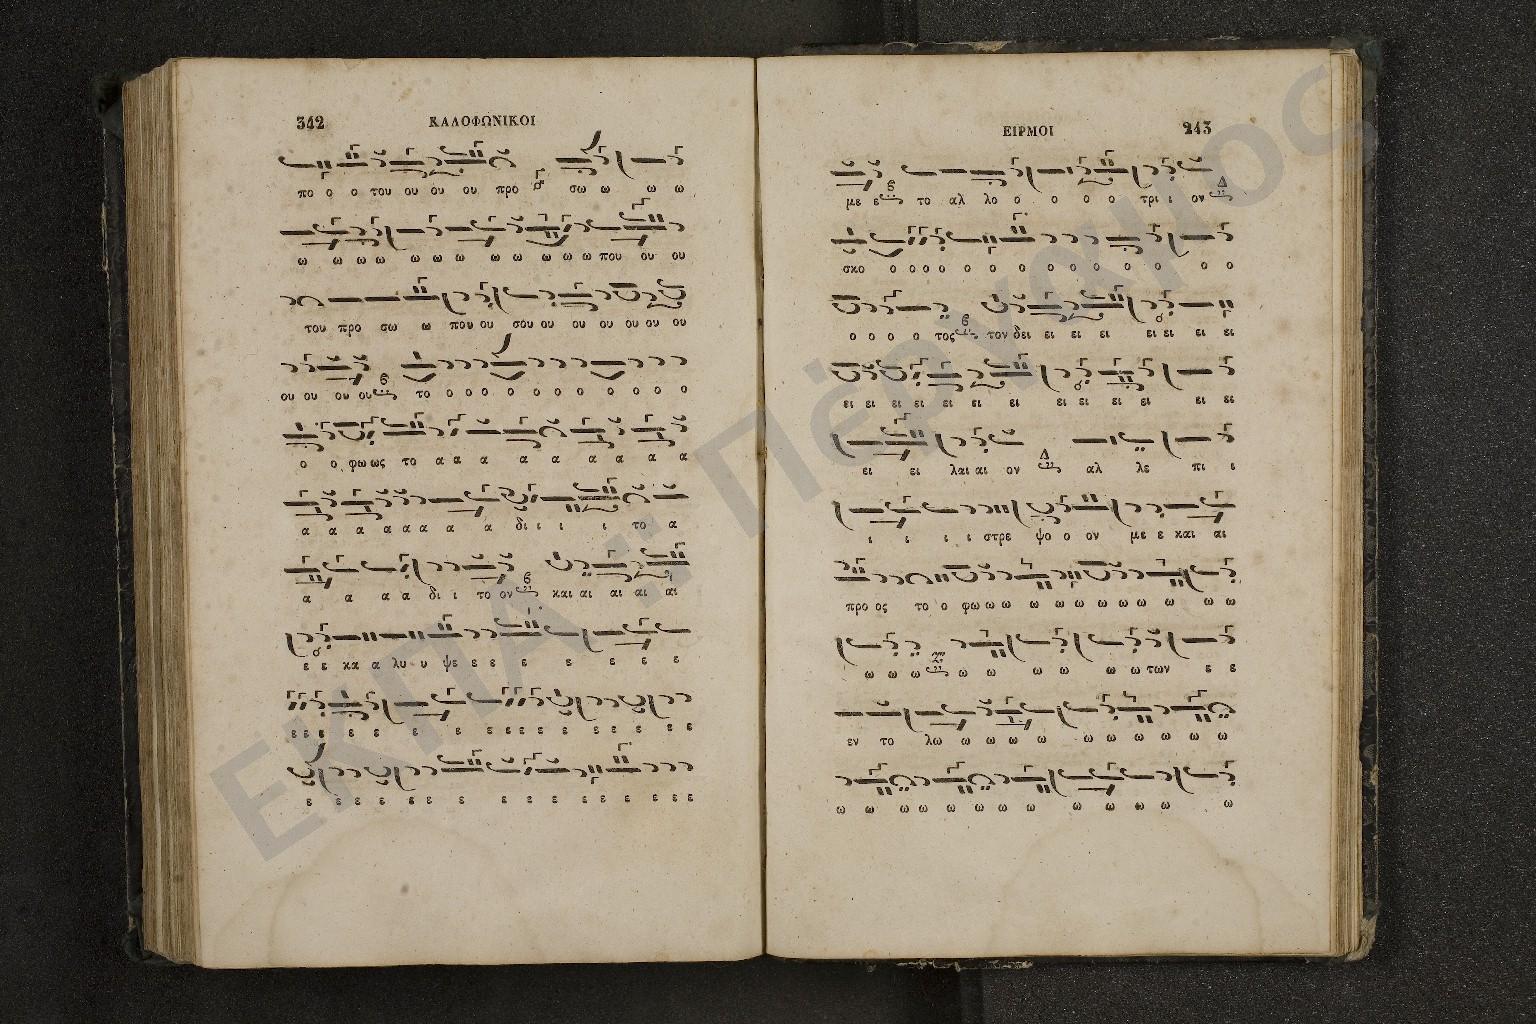 342
ΚΑΛΟΦΩΝΙΚΟΙ
πο ο ο του ου ου ου προ σω ω ω ω
ω ω ω ω ω ω ω ω ω ω ω ω που ου ου
του προ σω ω που ου σου ου ου ου ου ου ου
ου ου ου ου το ο ο ο ο ο ο ο ο ο ο ο
ο ο φω ως το α α α α α α α α α
α α α α α α α α δι ι ι ι το α
α α α α δι ι το ον και αι αι αι αι
ε ε κα α λυ υ ψε ε ε ε ε ε ε ε
ε ε ε ε ε ε ε ε ε ε ε ε ε ε ε ε ε
ε ε ε ε ε ε ε ε ε ε ε ε ε ε ε ε ε
ΕΙΡΜΟΙ
243
με ε το αλ λο ο ο ο ο ο τρι ι ον
σκο ο ο ο ο ο ο ο ο ο ο ο ο ο ο
ο ο ο ο τος τον δει ει ει ει ει ει ει ει ει
ει ει ει ει ει ει ει ει ει ει ει ει ει
ει ει λαι αι ον αλ λε πι ι
ι ι ι ι στρε ψο ο ον με ε και αι
προ ος το ο φω ω ω ω ω ω ω ω ω ω ω ω
ω ω ω ω ω ω ω ω ω των ε ε
εν το λω ω ω ω ω ω ω ω ω ω ω
ω ω ω ω ω ω ω ω ω ω ω ω ω
ΕΚΠΑ :: Πέργαμος